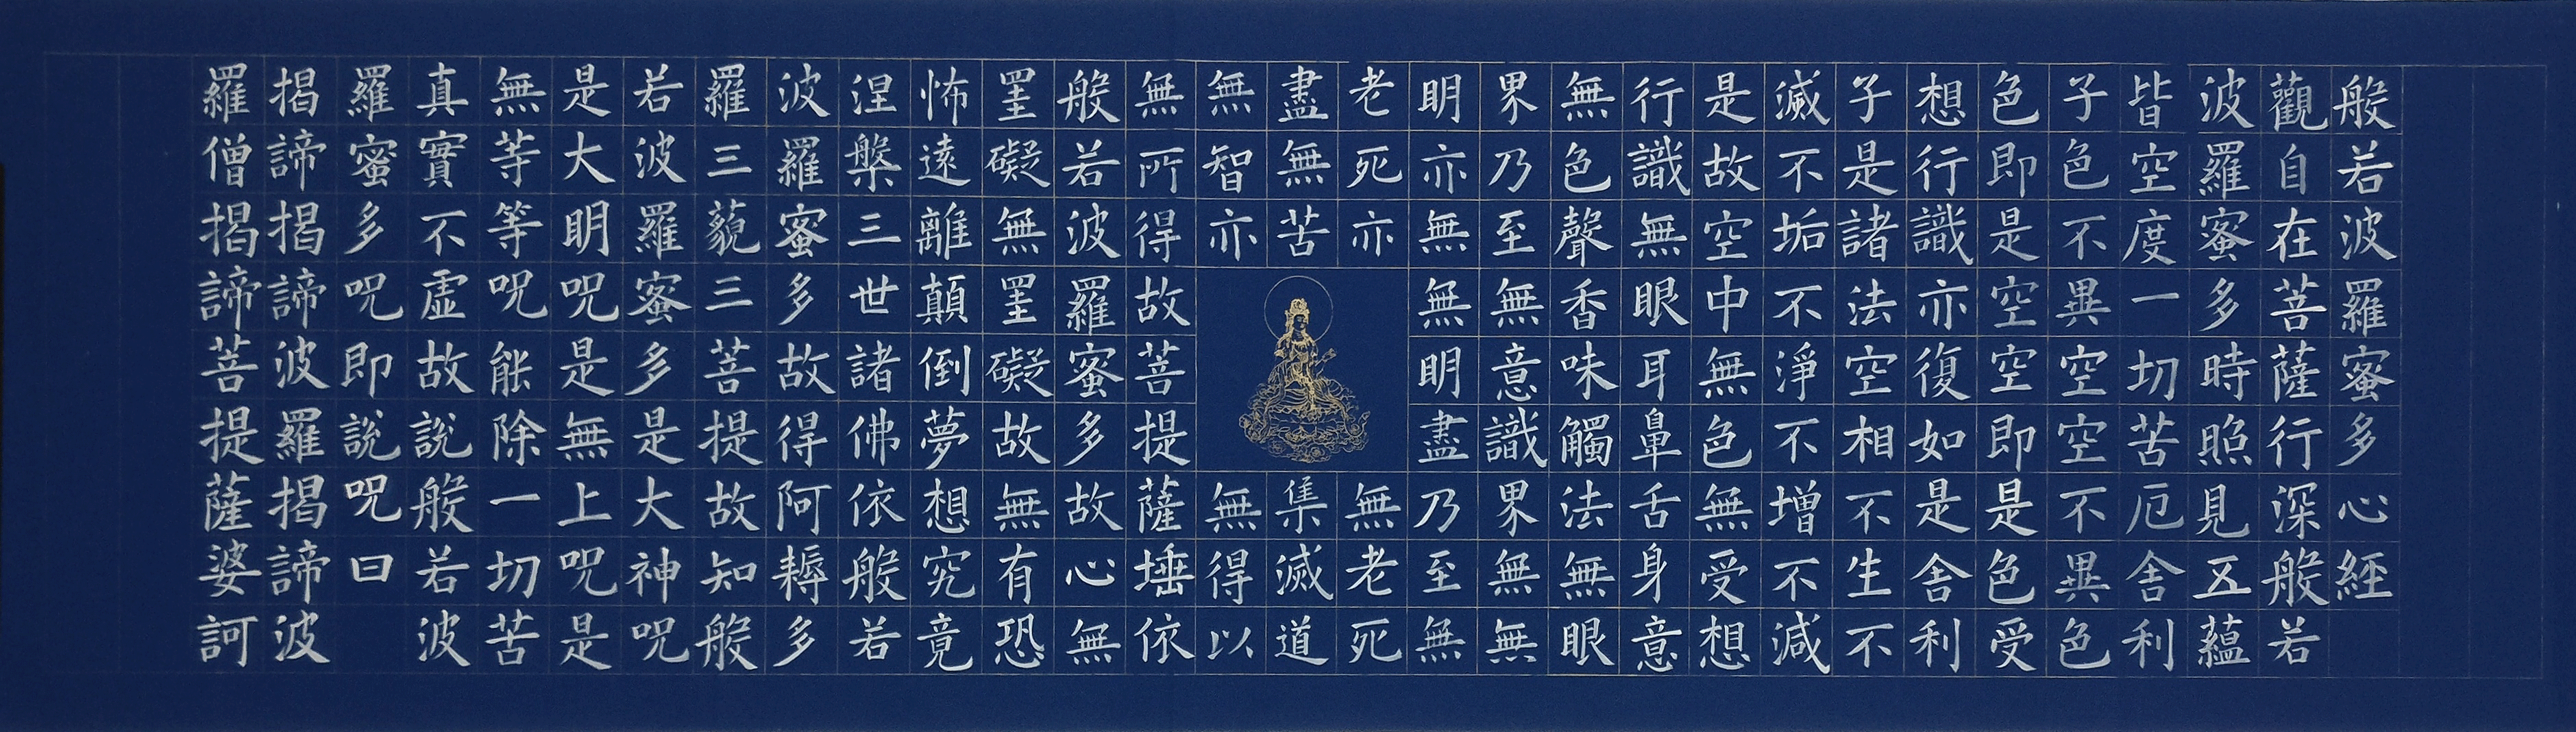 般若波羅蜜多心經
觀自在菩薩行深般若
波羅蜜多時照見五蘊
皆空度一切苦厄舍利
子色不異空空不異色
色即是空空即是色受
想行識亦復如是舍利
子是諸法空相不生不
滅不垢不淨不增不減
是故空中無色無受想
行識無眼耳鼻舌身意
無色聲香味觸法無眼
界乃至無意識界無無
明亦無無明盡乃至無
老死亦無老死
盡無苦集滅道
無智亦無得以
無所得故菩提薩埵依
般若波羅蜜多故心無
罣礙無罣礙故無有恐
怖遠離顛倒夢想究竟
涅槃三世諸佛依般若
波羅蜜多故得阿耨多
羅三藐三菩提故知般
若波羅蜜多是大神呪
是大明呪是無上呪是
無等等呪能除一切苦
真實不虛故說般若波
羅蜜多呪即說呪曰
揭諦揭諦波羅揭諦波
羅僧揭諦菩提薩婆訶